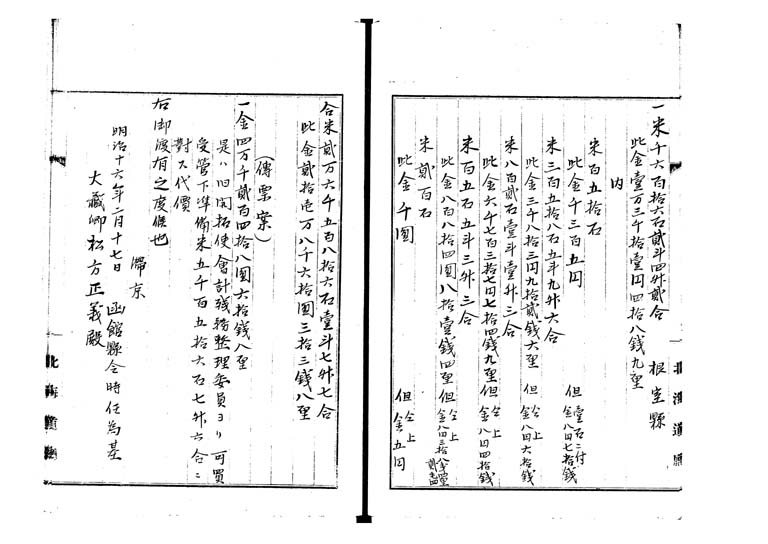 一米千六百拾六石貳斗四舛貳合 根室縣
此金壹万三千拾壹円四拾八銭九厘
内
米百五拾石
此金千三百五円 但壹石ニ付金八円七拾銭
米三百五拾八石五斗九舛六合
此金三千八拾三円九拾貳銭六厘 但仝上金八円六拾銭
米八百貳石壹斗壹舛三合
此金六千七百三拾七円七拾四銭九厘 但仝上金八円四拾銭
米百五石五斗三舛三合
此金八百八拾四圓八拾壹銭四厘 但仝上
米貳百石
此金千圓 但仝上金五円
合米貳万六千五百八拾六石壹斗七舛七合
此金貳拾壱万八千六拾圓三拾三銭八厘
(傳票案)
一金四万千貳百四拾八圓六拾銭八厘
是ハ旧開拓使會計残務整理委員ヨリ可買
受管下準備米五千百五拾六石七舛六合ニ
對スル代價
右御渡有之度候也
帰京
明治十六年二月十七日 函館縣令時任為基
大藏卿松方正義殿
北海道廳
北海道廳